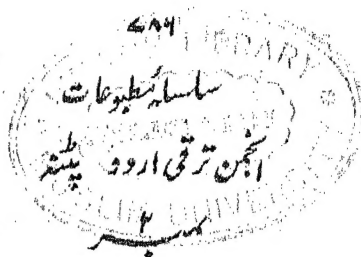 ۷۸۶
سلسلہ مطبوعات
انجمن ترقی اردو پٹنہ
نمبر ۲
LIBRARY